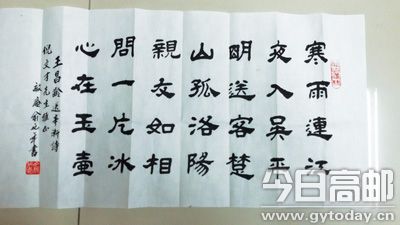 寒雨連江
夜入吳平
明送客楚
山孤洛陽
親友如相
問一片冰
心在玉壺
王昌齡送辛漸詩
倪文才先生雅正
書
今日高邮
www.gytoday.cn